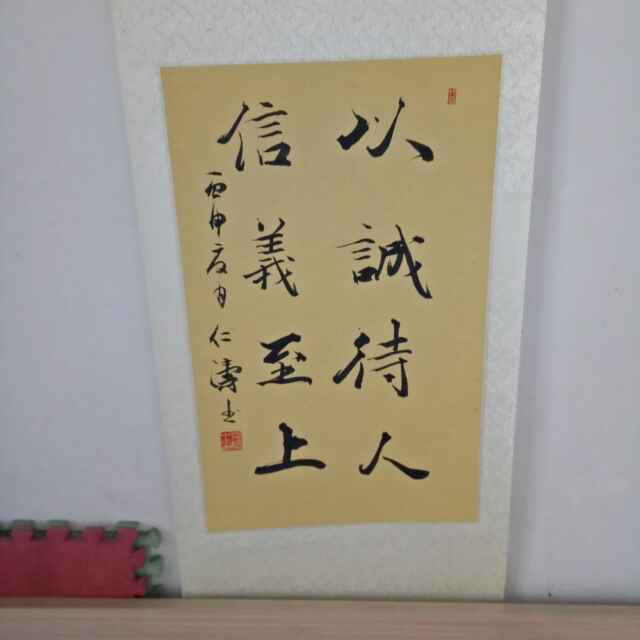 以誠待人
信義至上
丙申夏月仁濤书